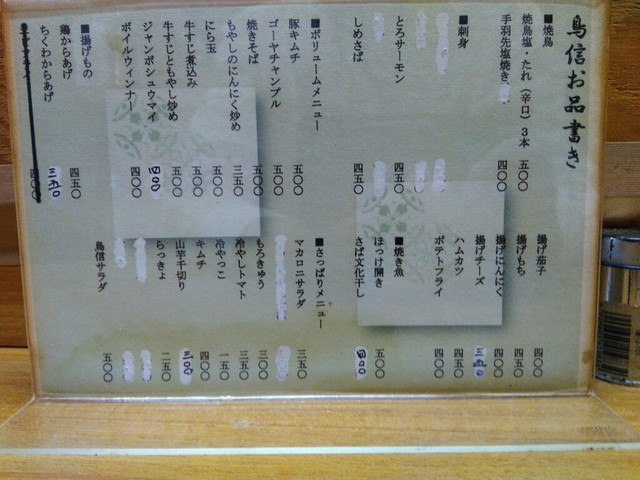 鳥信お品書き
■焼鳥
焼鳥塩・たれ（辛口）3本 五〇〇
手羽先塩焼き 四〇〇
■刺身
とろサーモン 四五〇
しめさば 四五〇
■ボリュームメニュー
豚キムチ 五〇〇
ゴーヤチャンプル 五〇〇
焼きそば 五〇〇
もやしのにんにく炒め 三五〇
にら玉 五〇〇
牛すじ煮込み 五〇〇
牛すじともやし炒め 五〇〇
ジャンボシュウマイ 四〇〇
ボイルウィンナー 四〇〇
■揚げもの
鶏からあげ 四五〇
ちくわからあげ 三五〇
四〇〇
揚げ茄子 四〇〇
揚げもち 四五〇
揚げにんにく 四〇〇
揚げチーズ 三五〇
ハムカツ 四五〇
ポテトフライ 四〇〇
■焼き魚
ほっけ開き 五〇〇
さば文化干し 四〇〇
■さっぱりメニュー
マカロニサラダ 三五〇
もろきゅう 三〇〇
冷やしトマト 三五〇
冷やっこ 一五〇
キムチ 四〇〇
山芋千切り 三〇〇
らっきょ 二五〇
鳥信サラダ 五〇〇